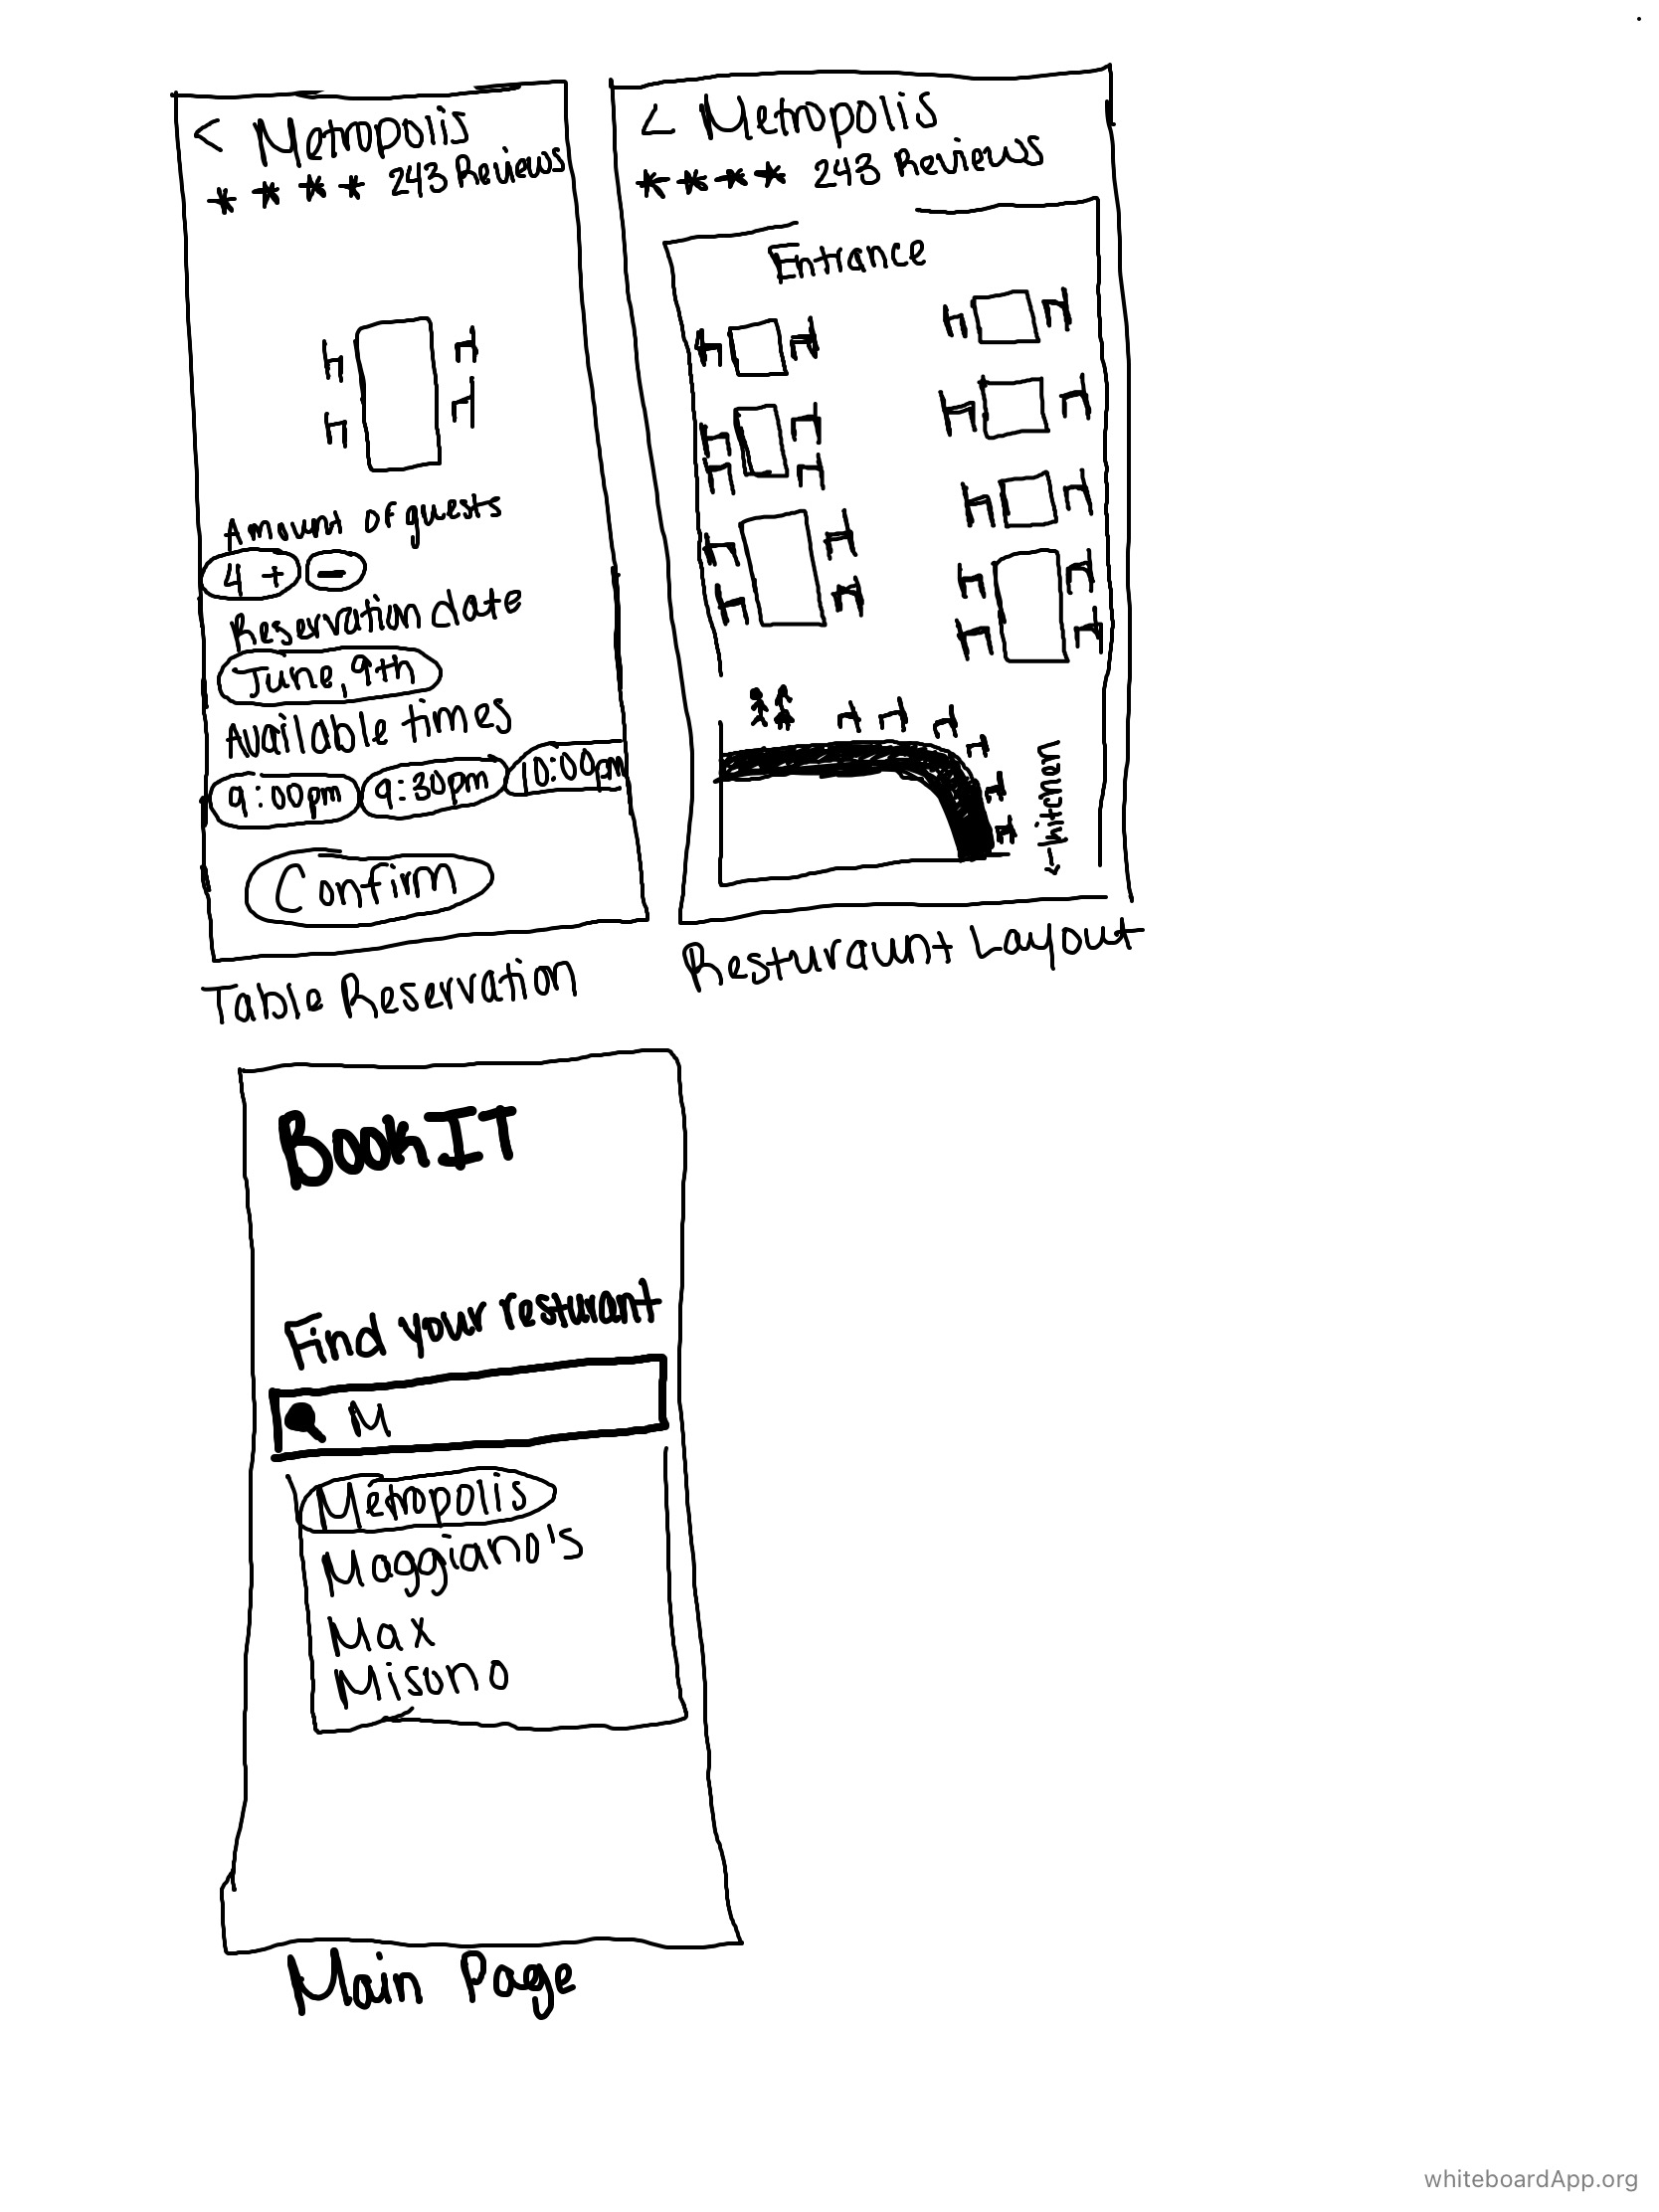 < Metropolis
* * * * 243 Reviews
Amount of guests
4 + -
Reservation date
June, 9th
Available times
9:00pm 9:30pm 10:00pm
Confirm
Table Reservation
< Metropolis
**** 243 Reviews
Entrance
←kitchen
Resturaunt Layout
BookIT
Find your resturant
M
Metropolis
Maggiano's
Max
Misono
Main Page
whiteboardApp.org